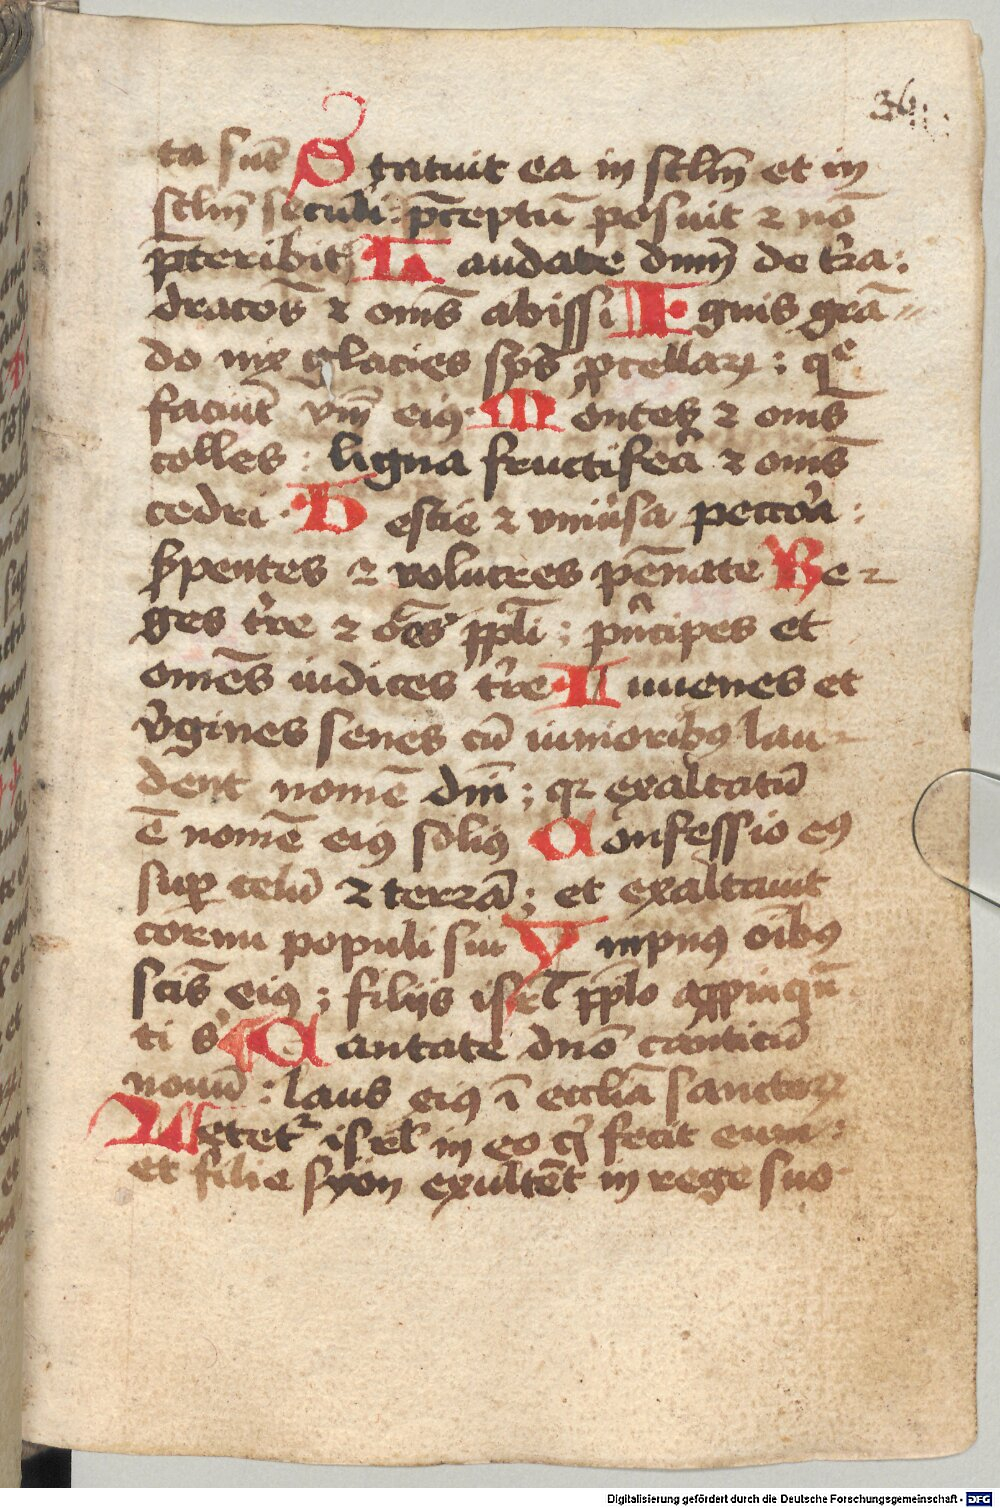 36
ta sūt Statuit ea in sclm̄ et in
sclm̄ seculi : p̄ceptū posuit ⁊ nō
p̄teribit Laudate dnm̄ de tr̄a :
dracōs ⁊ om̄s abissi Ignis grā-
do nix glacies sp̄s ꝓcellarꝝ : qͤ
faciūt vm̄ eiꝰ Montes ⁊ om̄s
colles : ligna fructifea̾ ⁊ om̄s
cedri Bestie ⁊ vniu̾sa peccoa̾ :
s̾pentes ⁊ volucres pēnate Re-
ges tr̄e ⁊ ōēs ppl̄i ; pn̾cipes et
omēs iudices tr̄e Iuuenes et
v̾gines senes cū iunioribꝰ lau-
dent nomē dn̄i ; qꝛ exaltatū
ē nomē eiꝰ soliꝰ Confessio eiꝰ
suꝑ celū ⁊ terrā ; et exaltauit
cornu populi sui Ympnꝰ oībꝰ
scīs eiꝰ ; filijs isrl̄ ppl̄o aꝓpinqū
ti s̾ Cantate dnō canticū
nouū : laus eiꝰ ī eccliā sanctoꝝ
Letetᷣ isrl̄ in eo qͥ fecit eum :
et filie syon exultēt in rege suo
Digitalisierung gefördert durch die Deutsche Forschungsgemeinschaft - DFG